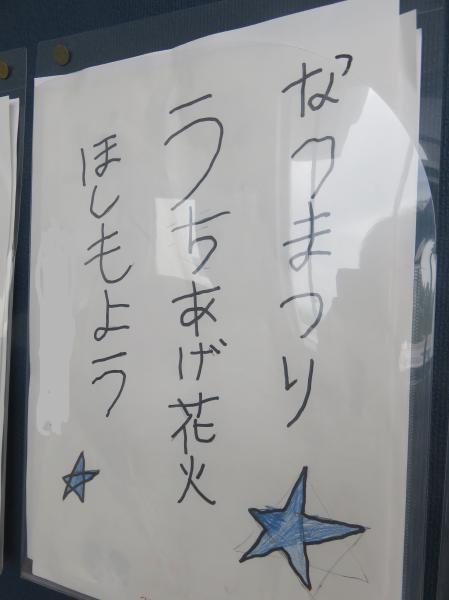 なつまつり
うちあげ花火
ほしもよう